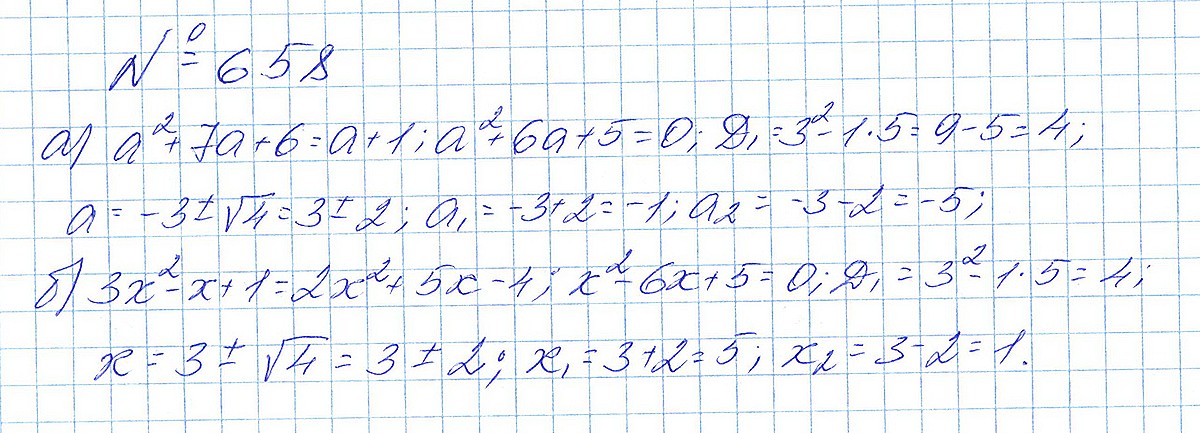 № 658
а) a² + 7a + 6 = a + 1; a² + 6a + 5 = 0; Д₁ = 3² - 1 · 5 = 9 - 5 = 4;
a = -3 ± √4 = 3 ± 2; a₁ = -3 + 2 = -1; a₂ = -3 - 2 = -5;
б) 3x² - x + 1 = 2x² + 5x - 4; x² - 6x + 5 = 0; Д₁ = 3² - 1 · 5 = 4;
x = 3 ± √4 = 3 ± 2; x₁ = 3 + 2 = 5; x₂ = 3 - 2 = 1.